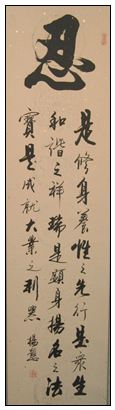 忍
是修身養性之先行是衆生
和諧之祥瑞是顯身揚名之法
寶是成就大業之利器